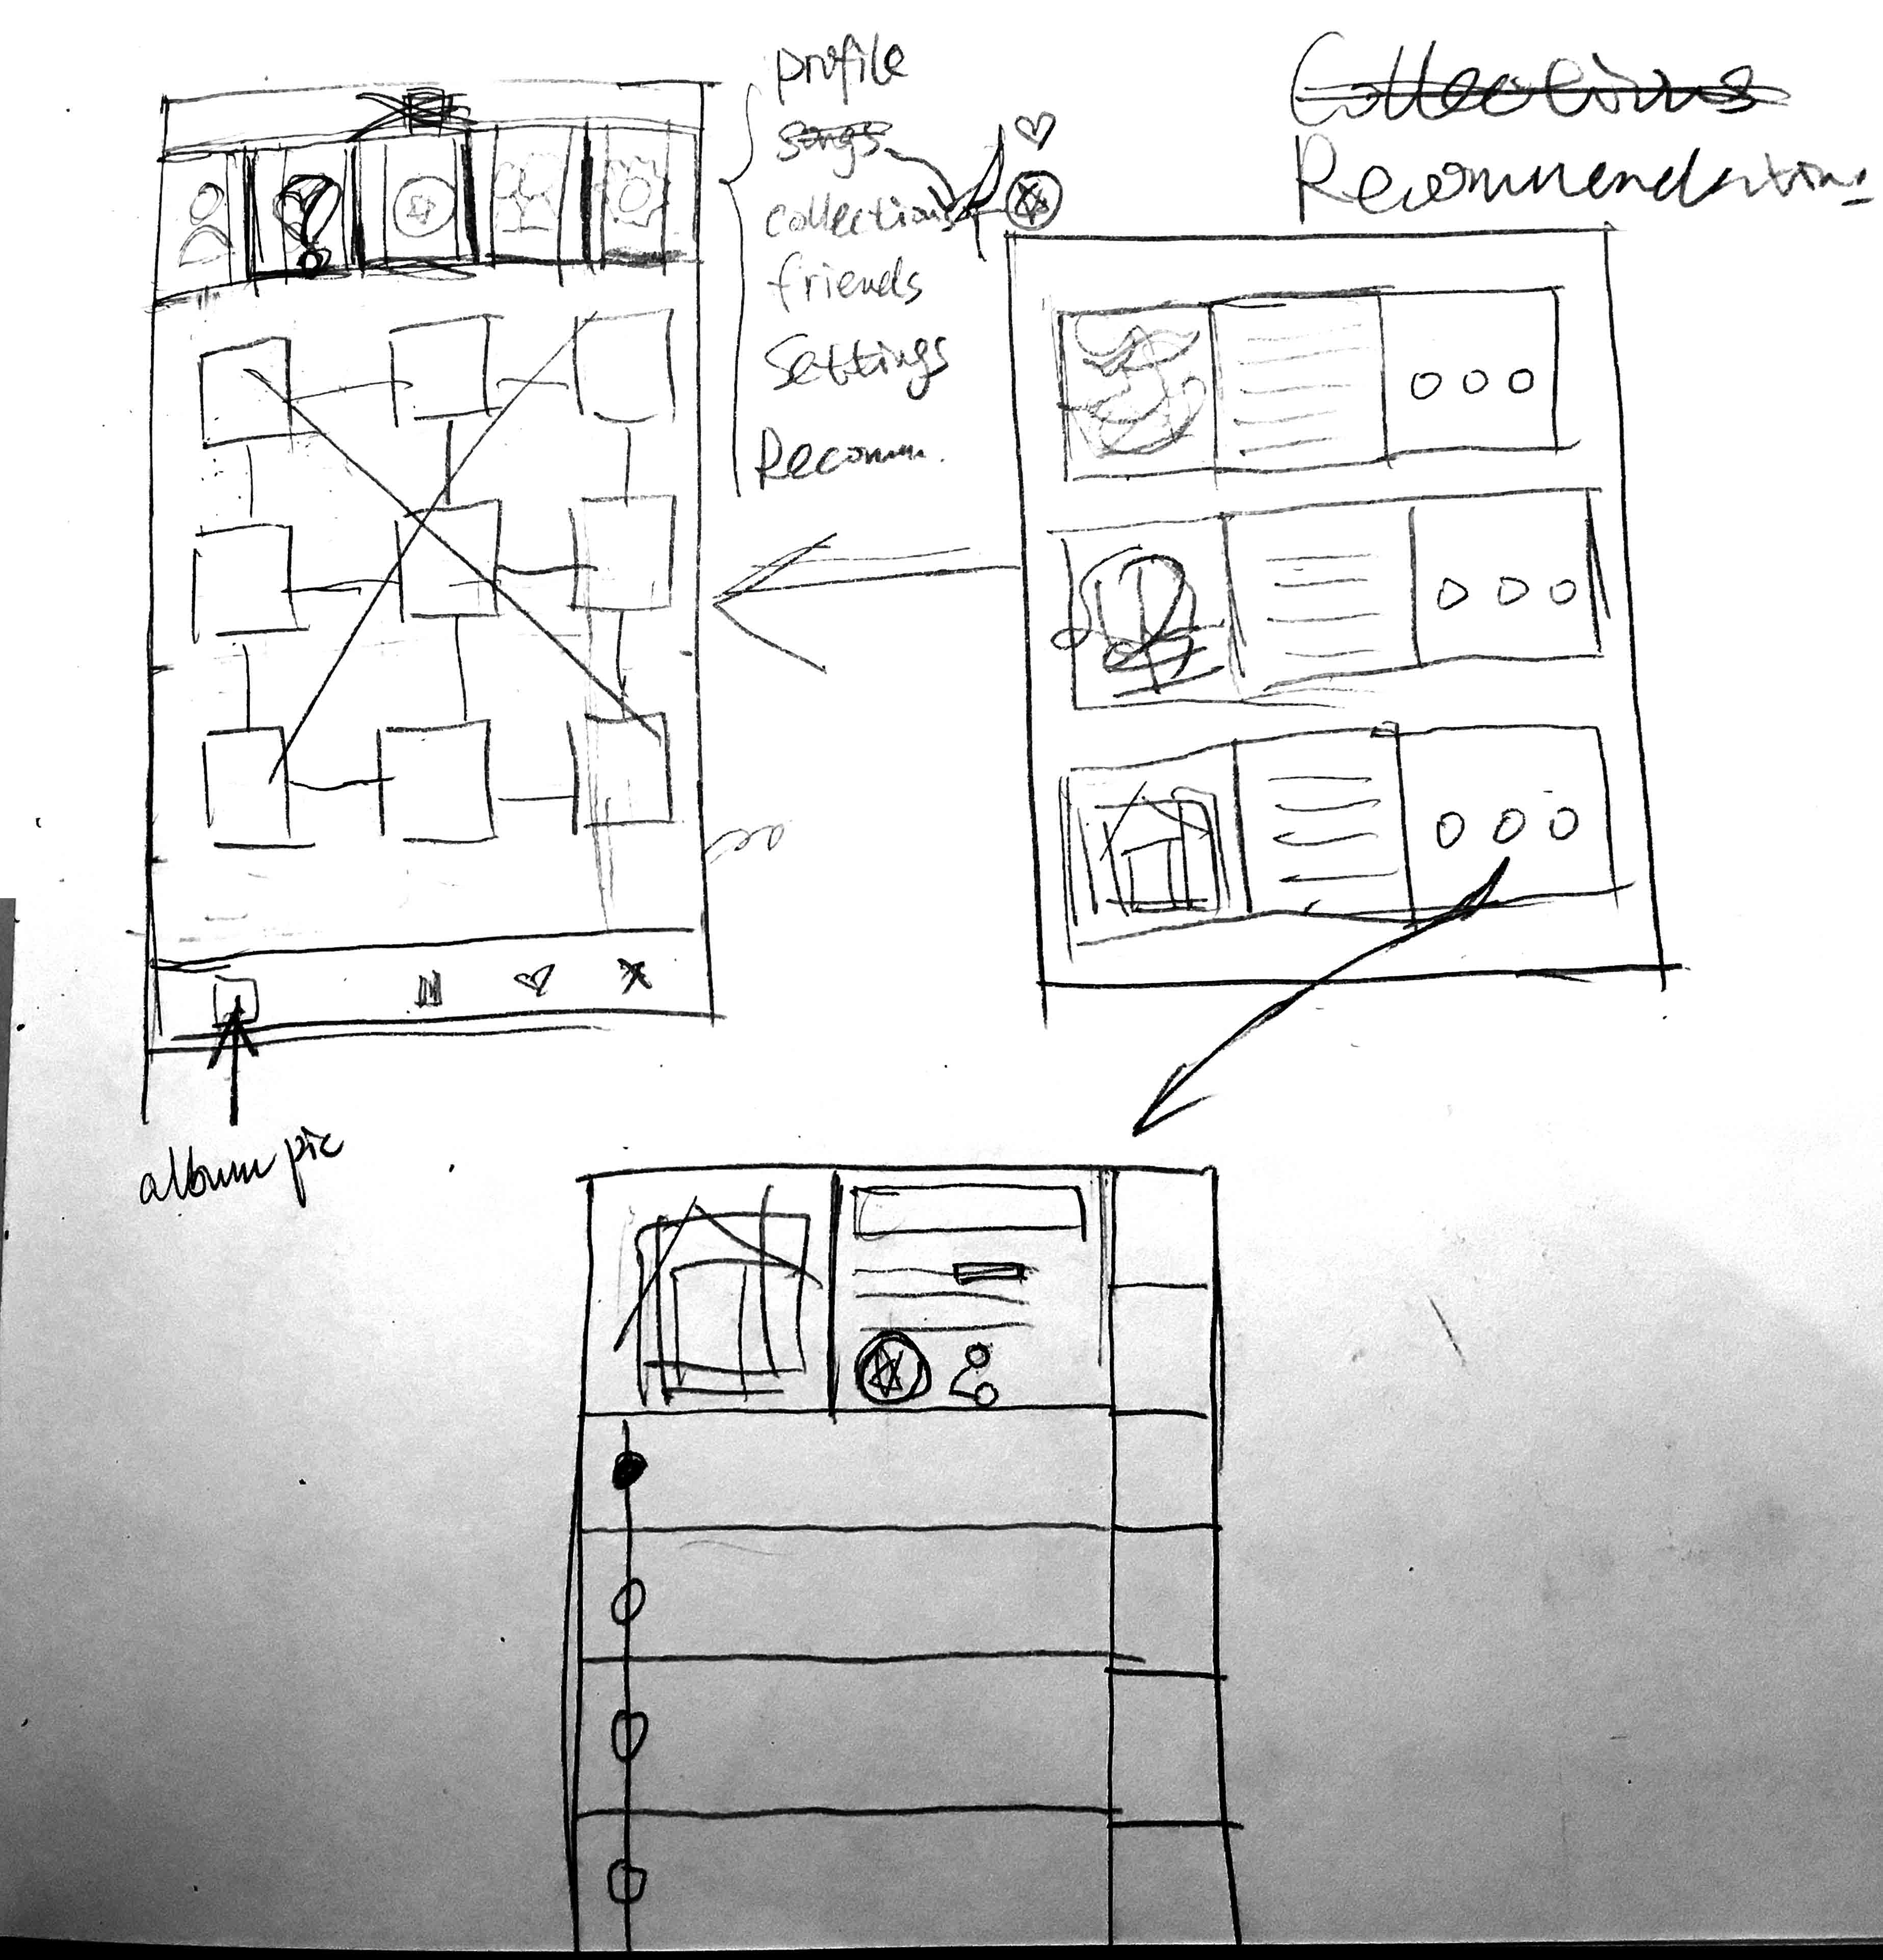 profile
songs
collections
friends
Settings
Recomm.
Collections
Recommendations
album pic